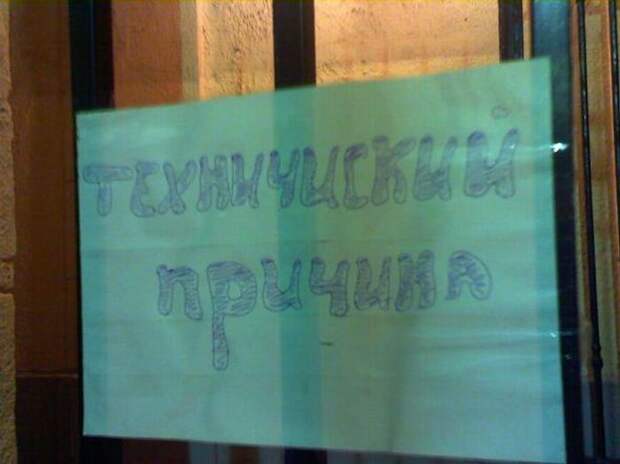 техничиский
причина